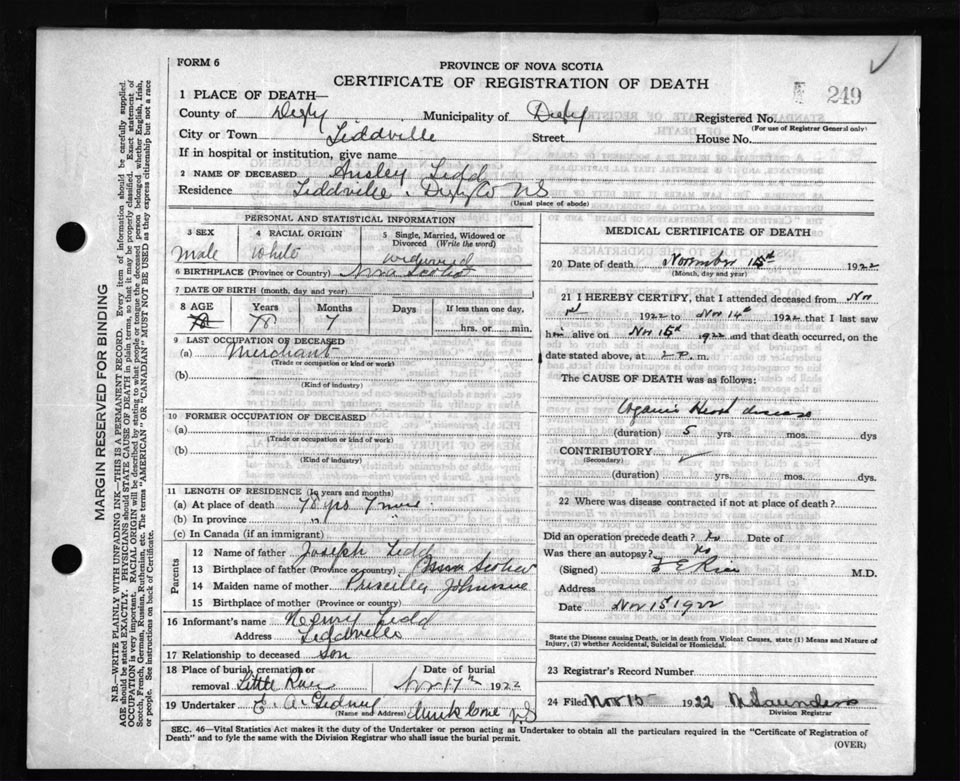 FORM 6
PROVINCE OF NOVA SCOTIA
CERTIFICATE OF REGISTRATION OF DEATH
249
1 PLACE OF DEATH—
County of Digby Municipality of Digby Registered No.
(For use of Registrar General only)
City or Town Tiddville Street House No.
If in hospital or institution, give name
2 NAME OF DECEASED Ansley Tidd
Residence Tiddville, Digby Co NS
(Usual place of abode)
PERSONAL AND STATISTICAL INFORMATION
3 SEX Male
4 RACIAL ORIGIN White
5 Single, Married, Widowed or Divorced (Write the word) widowed
6 BIRTHPLACE (Province or Country) Nova Scotia
7 DATE OF BIRTH (month, day and year)
8 AGE Years Months Days If less than one day,
78 78 7 hrs. or min.
9 LAST OCCUPATION OF DECEASED
(a) Merchant
(Trade or occupation or kind or work)
(b)
(Kind of industry)
10 FORMER OCCUPATION OF DECEASED
(a)
(Trade or occupation or kind of work)
(b)
(Kind of industry)
11 LENGTH OF RESIDENCE (In years and months)
(a) At place of death 78 yrs 7 mos.
(b) In province "
(c) In Canada (if an immigrant)
Parents
12 Name of father Joseph Tidd
13 Birthplace of father (Province or country) Nova Scotia
14 Maiden name of mother Priscilla
15 Birthplace of mother (Province or country)
16 Informant's name Henry Tidd
Address Tiddville
17 Relationship to deceased son
18 Place of burial, cremation or removal Little River
Date of burial Nov 17th 1922
19 Undertaker E. A. Gidney Mink Cove NS
(Name and Address)
MEDICAL CERTIFICATE OF DEATH
20 Date of death November 15th 1922
(Month, day and year)
21 I HEREBY CERTIFY, that I attended deceased from Nov
1922 to Nov 14th 1922 that I last saw
him alive on Nov 15th 1922 and that death occurred, on the
date stated above, at 2 P. m.
The CAUSE OF DEATH was as follows:
Organic Heart disease
(duration) 5 yrs. mos. dys
CONTRIBUTORY
(Secondary)
(duration) yrs. mos. dys.
22 Where was disease contracted if not at place of death?
Did an operation precede death? No Date of
Was there an autopsy? No
(Signed) F E Rice M.D.
Address
Date Nov 15 1922
State the Disease causing Death, or in death from Violent Causes, state (1) Means and Nature of
Injury, (2) whether Accidental, Suicidal or Homicidal.
23 Registrar's Record Number
24 Filed Nov 15 1922 Saunders
Division Registrar
SEC. 46—Vital Statistics Act makes it the duty of the Undertaker or person acting as Undertaker to obtain all the particulars required in the "Certificate of Registration of
Death" and to fyle the same with the Division Registrar who shall issue the burial permit.
(OVER)
MARGIN RESERVED FOR BINDING
N.B.—WRITE PLAINLY WITH UNFADING INK—THIS IS A PERMANENT RECORD. Every item of information should be carefully supplied.
AGE should be stated EXACTLY. PHYSICIANS should STATE CAUSE OF DEATH in plain terms, so that it may be properly classified. Exact statement of
OCCUPATION is very important. RACIAL ORIGIN will be described by stating to what people or tongue the deceased person belonged whether English, Irish,
Scotch, French, German, Russian, Ruthenian, etc. The terms "AMERICAN" OR "CANADIAN" MUST NOT BE USED as they express citizenship but not a race
or people. See instructions on back of Certificate.